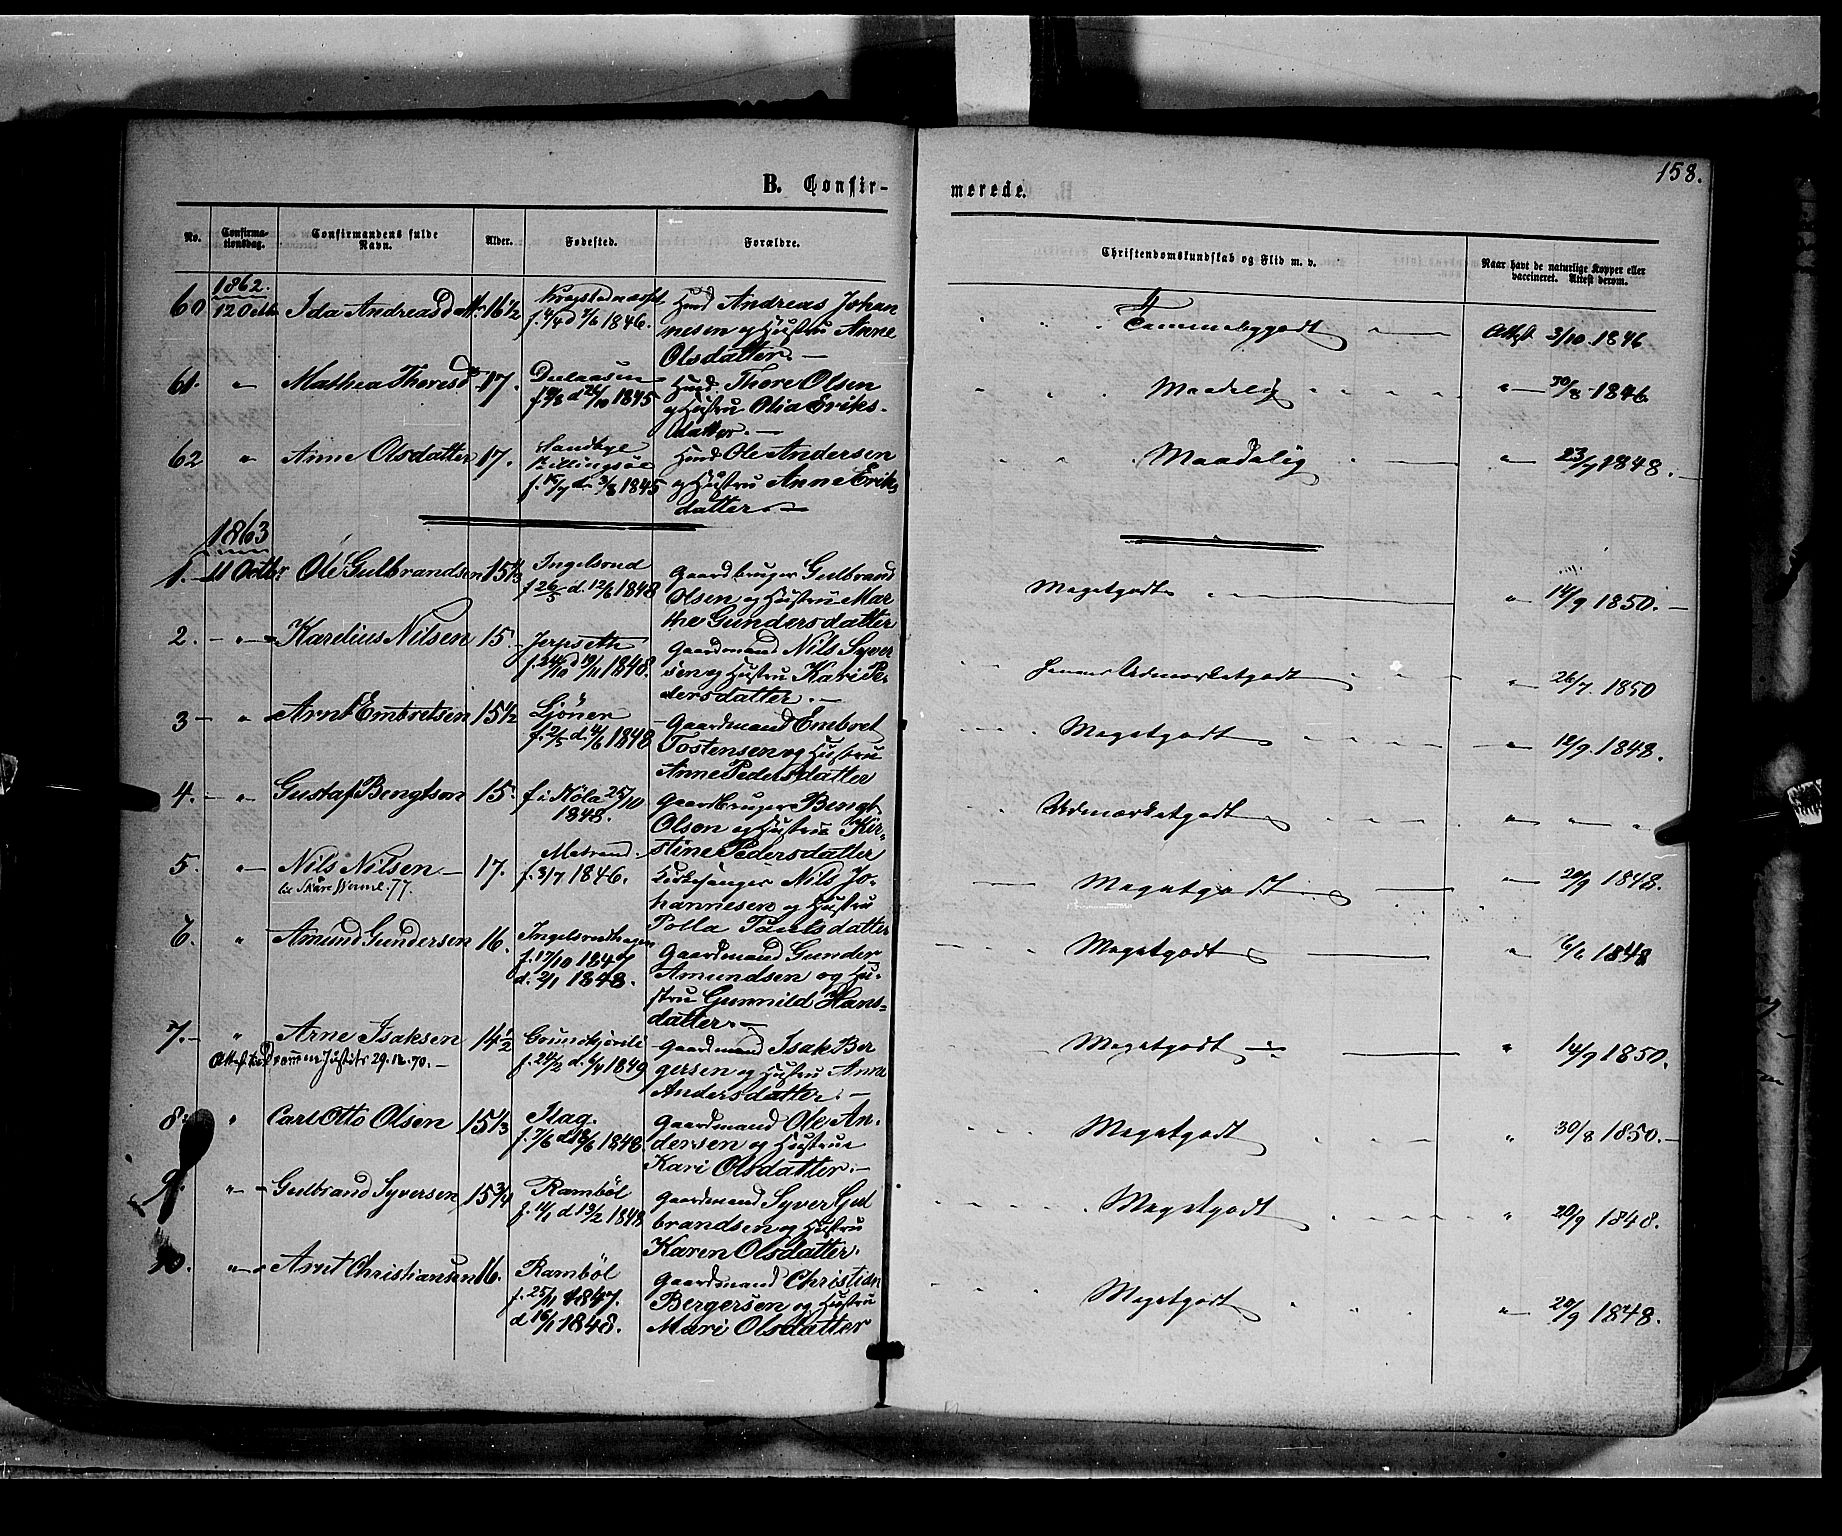 158.
B. Confir-
merede.
No.
Confirma-
tionsdag.
Confirmandens fulde
Navn.
Alder.
Fødested.
Forældre.
Christendomskundskab og Flid m. v.
Naar havt de naturlige Kopper eller
vaccineret. Attest derom.
1862.
60 12 Octbr. Ida Andreasdatt. 16½
f. 4/4 d 7/6 1846.
Huusmd Andreas Johan
nesen og Hustru Anne
Olsdatter. —
Temmeliggodt — Attest 3/10 1846
61. " Mathea Thoresd. 17.
1845
Huusmd. Thore Olsen
og Hustru Olia Eriks-
datter. —
Maadelig " — 30/8 1846.
62 " Anne Olsdatter 17.
1845
Huusmd Ole Andersen
og Hustru Anne Eriks
datter. —
Maadelig " — 23/7 1848. —
1863
1. — 11 Octbr Ole Gulbrandsen 15⅓
Ingelsrud
f 26/5 d. 12/6 1848
Gaardbruger Gulbrand
Olsen og Hustru Mar
the Gundersdatter
Megetgodt " 14/9 1850. —
2. — " — Karelius Nilsen 15.
Jerpseth
f. 24/10 d 19/11 1848.
Gaardmand Nils Syver
sen og Hustru Kari Pe-
dersdatter. —
Udmærketgodt " 26/7 1850
3 — " Arnt Embretsen 15½
Ljöner
f. 2/5 d. 4/6 1848
Gaardmand Embret
Tostensen og Hustru
Anne Pedersdatter
Megetgodt " 12/9. 1848.
4. — " — Gustaf Bengtson 15.
f i Köla 25/10
1848.
Gaardbruger Bengt
Olson og Hustru Kir-
stine Pedersdatter
Udmærketgodt " " "
5. " Nils Nilsen. — 17.
Matrand.
f. 3/7 1846.
Kirkesanger Nils Jo-
hannesen og Hustru
Polla Paulsdatter
Megetgodt — " 20/9 1848.
6. " Amund Gundersen 16.
Ingelsrudhagen
f. 17/10 1847
d. 2/1 1848.
Gaardmand Gunder
Amundsen og Hu-
stru Gunnild Hans-
datter. —
Megetgodt — " 6/6 1848
7. — " Arne Isaksen 14½
29.12.70. —
f. 24/2 d. 6/4 1849
Gaardmand Isak Ber
gersen og Hustru Anne
Andersdatter. —
Megetgodt — " 14/9 1850.
8. " Carl Otto Olsen 15⅓
Slag.
f. 7/6 d 18/6 1848.
Gaardmand Ole An-
dersen og Hustrue
Kari Olsdatter. —
Megetgodt " 30/8 1850. —
9. " — Gulbrand Syversen 15¾
Ramböl
f. 11/1 d 13/2 1848
Gaardmand Syver Gul
brandsen og Hustru
Karen Olsdatter.
Megetgodt " 20/9 1848.
10. " — Arnt Christiansen 16.
Ramböl
f. 25/11 1847.
d 16/1 1848.
Gaardmand Christian
Bergersen og Hustru
Mari Olsdatter
Megetgodt " — 20/9 1848.